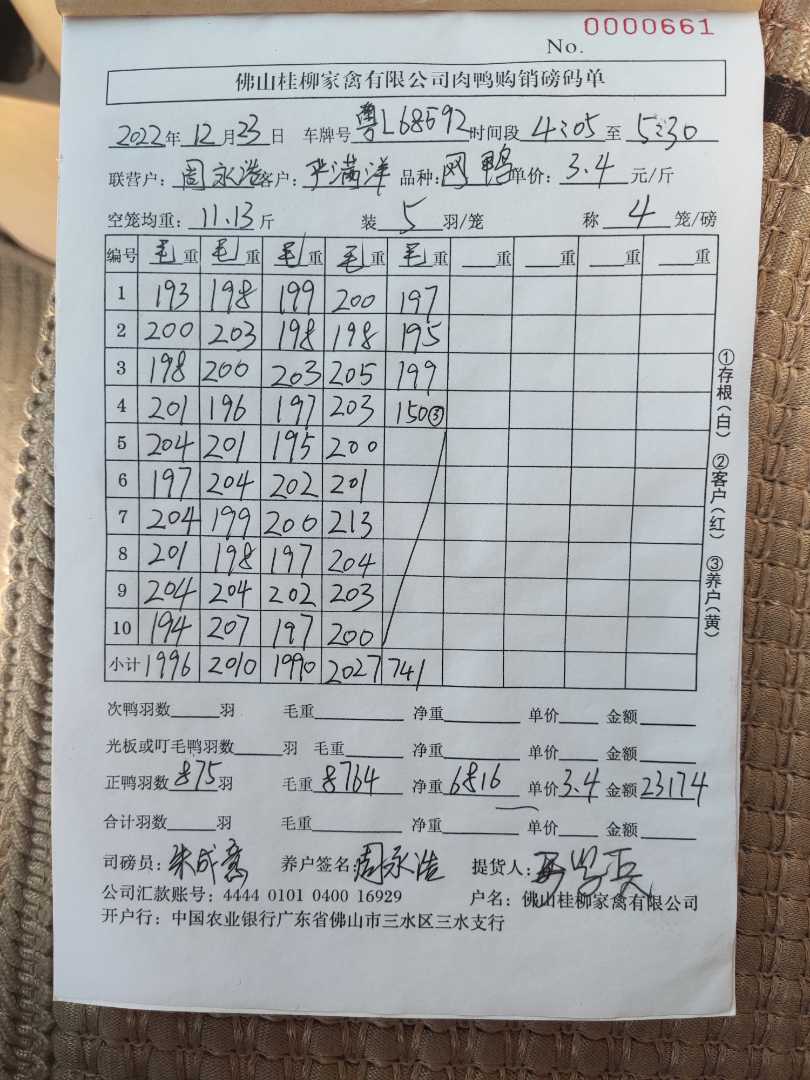 No. 0000661
佛山桂柳家禽有限公司肉鸭购销磅码单
2022年 12月23日 车牌号 粤L68692 时间段 4:05 至 5:30
联营户：周永浩 客户：严满洋 品种：网鸭 单价：3.4 元/斤
空笼均重：11.13斤 装 5 羽/笼 称 4 笼/磅
编号 毛重 毛重 毛重 毛重 毛重 重 重 重 重
1 193 198 199 200 197
2 200 203 198 198 195
3 198 200 203 205 199
4 201 196 197 203 150③
5 204 201 195 200
6 197 204 202 201
7 204 199 200 213
8 201 198 197 204
9 204 204 202 203
10 194 207 197 200
小计 1996 2010 1990 2027 741
次鸭羽数 羽 毛重 净重 单价 金额
光板或叮毛鸭羽数 羽 毛重 净重 单价 金额
正鸭羽数 875 羽 毛重 8764 净重 6816 单价 3.4 金额 23174
合计羽数 羽 毛重 净重 单价 金额
司磅员： 养户签名：周永浩 提货人：
公司汇款账号：4444 0101 0400 16929 户名：佛山桂柳家禽有限公司
开户行：中国农业银行广东省佛山市三水区三水支行
①存根（白） ②客户（红） ③养户（黄）